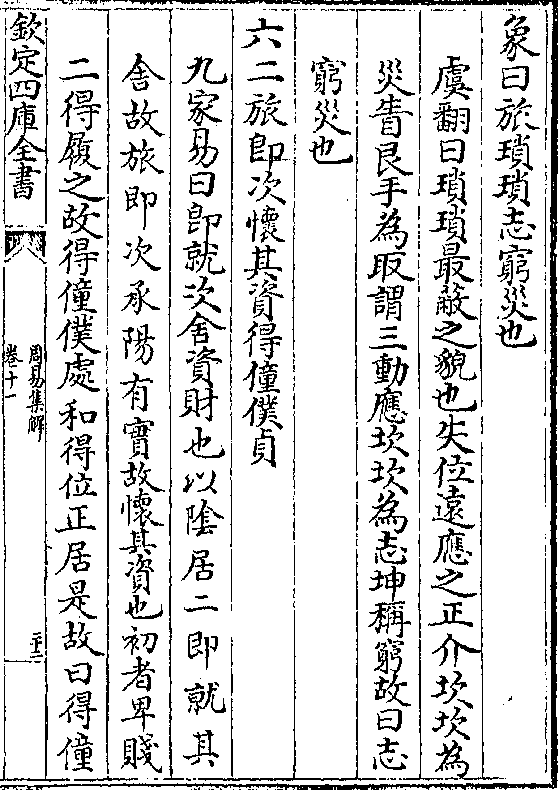 象曰旅瑣瑣志窮災也
虞翻曰瑣瑣最蔽之貌也失位遠應之正介坎坎為
災眚艮手為取謂三動應坎坎為志坤稱窮故曰志
窮災也
六二旅即次懷其資得僮僕貞
九家易曰即就次舍資財也以陰居二即就其
舍故旅即次承陽有實故懷其資也初者卑賤
二得履之故得僮僕處和得位正居是故曰得僮
欽定四庫全書
周易集解
卷十一
二十二